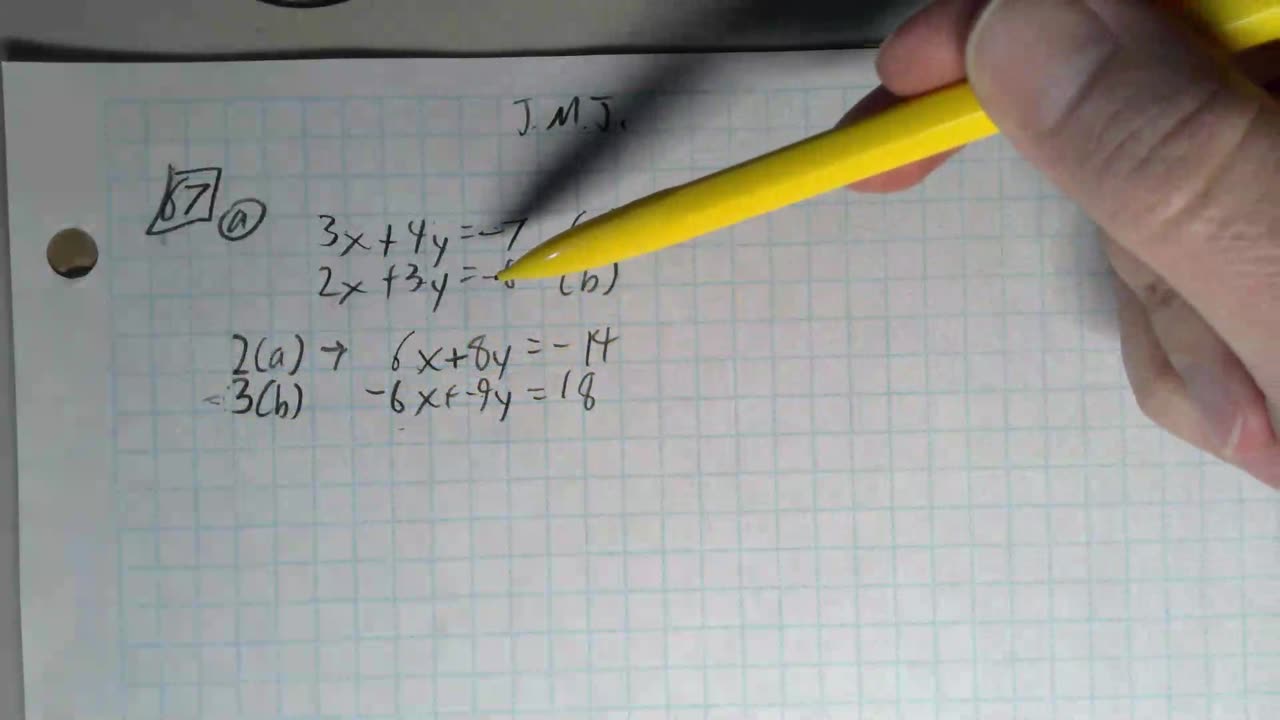 J.M.J.
67 a 3x+4y=-7
2x+3y=- (b)
2(a) → 6x+8y=-14
-3(b) -6x+-9y=18